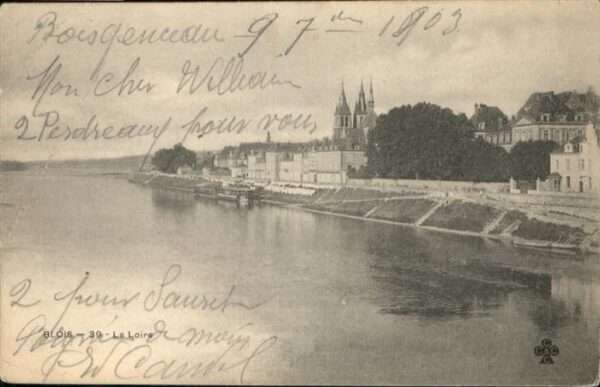 Boisgenceau 9 7bre 1903
Mon cher William
2 Perdreaux pour vous
2 pour Sauret
BLOIS - 39 - La Loire
de moi